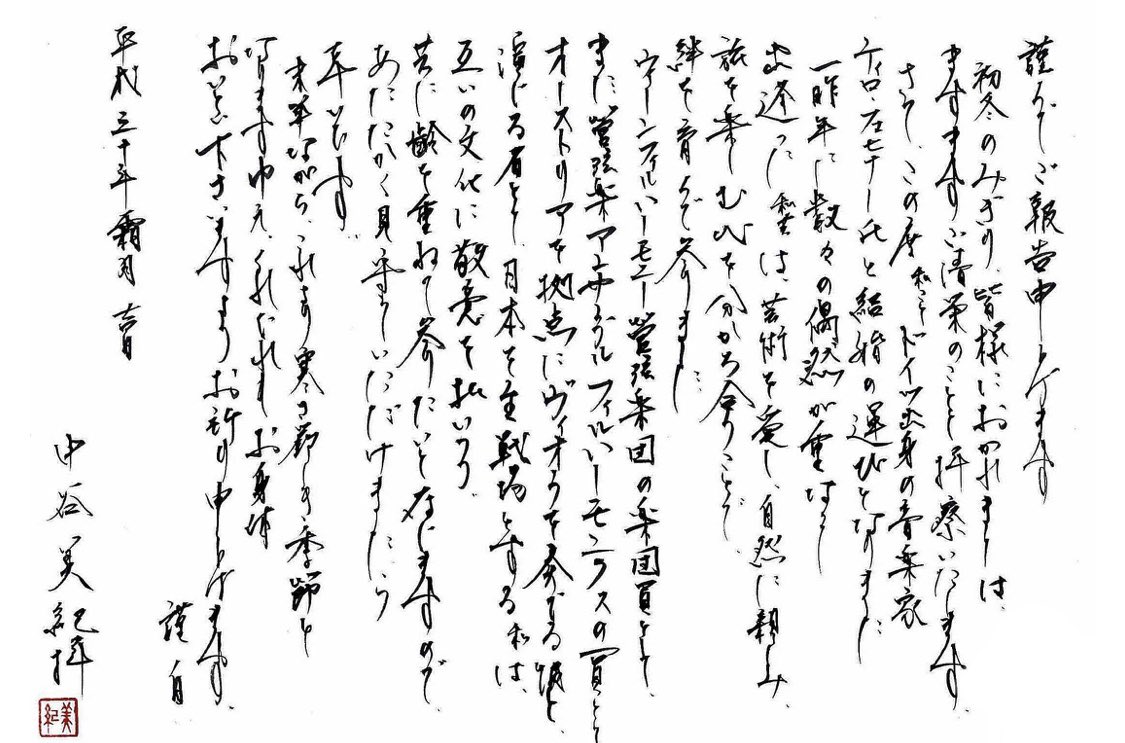 謹んでご報告申し上げます
初冬のみぎり、皆様におかれましては、
ますますご清栄のことと拝察いたします。
さて、この度私ことドイツ出身の音楽家
ティロ・フェヒナー氏と結婚の運びとなりました
一昨年に数々の偶然が重なって
出逢った私共は、芸術を愛し、自然に親しみ、
旅を楽しむ心を分かち合うことで、
絆を育んで参りました。
ウィーンフィルハーモニー管弦楽団の楽団員として、
また管弦楽アンサンブルフィルハーモニクスの一員として
オーストリアを拠点にヴィオラを奏でる彼と、
演じる者として日本を主戦場とする私は、
互いの文化に敬意を払いつつ、
共に齢を重ねて参りたいと存じますので
あたたかく見守っていただけましたら
幸いです。
末筆ながら、これより寒さ厳しき季節と
なりますゆえ、くれぐれもお身体
おいとい下さいますようお祈り申し上げます。
謹白
平成三十年霜月吉日
中谷美紀拝
美紀